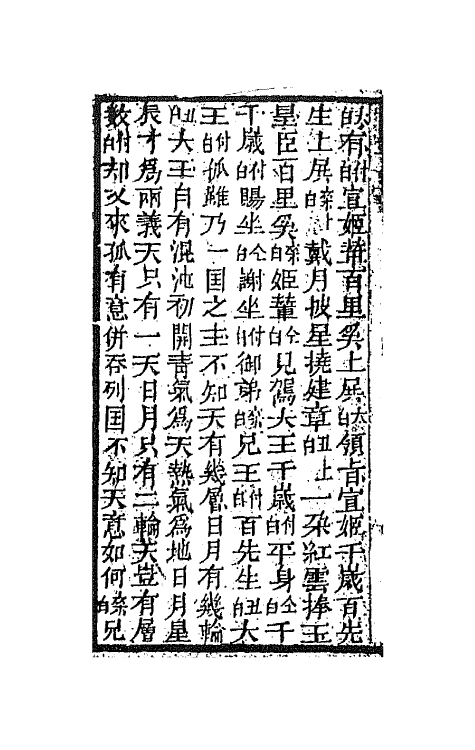 有付白宣姬輦百里奚上展白領旨宣姬千歲百先
生上展白戴月披星撓建章丑白上一朶紅雲捧玉
皇臣百里奚姬輦仝白見駕大王千歲付白平身仝白千
千歲付白賜坐仝白謝坐付白御弟叅白兄王付白百先生丑白大
王付白孤雖乃一国之主不知天有幾層日月有幾輪
丑白大王自有混沌初開青氣為天熱氣為地日月星
辰才為兩義天只有一天日月只有二輪天豈有層
數付白却又來孤有意併吞列国不知天意如何叅白兄